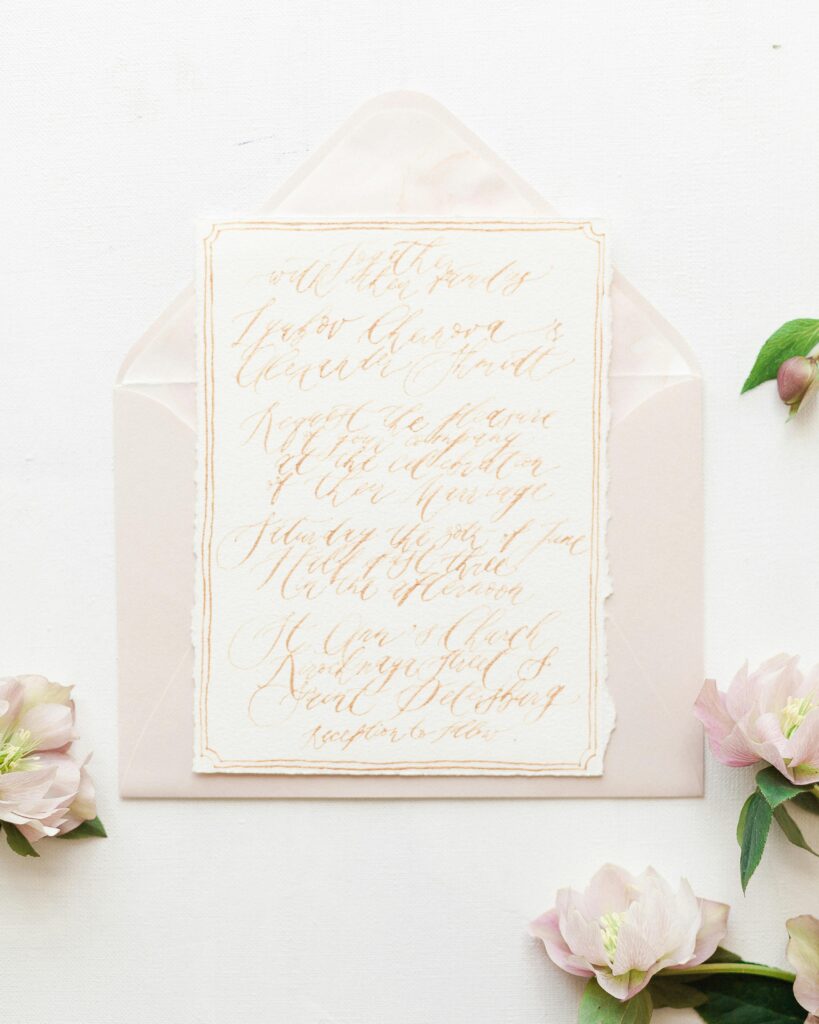 Together
with their families
Lyubov Chernova &
Alexander Shmidt
Request the pleasure
of your company
at the celebration
of their marriage
Saturday the 30th of June
Half past three
in the afternoon
St. Ann's Church
street 8
Saint Petersburg
Reception to follow